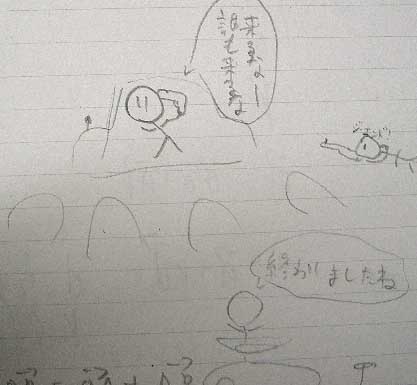 来るなー
誰も来るな
ジエンド!
終わりましたね